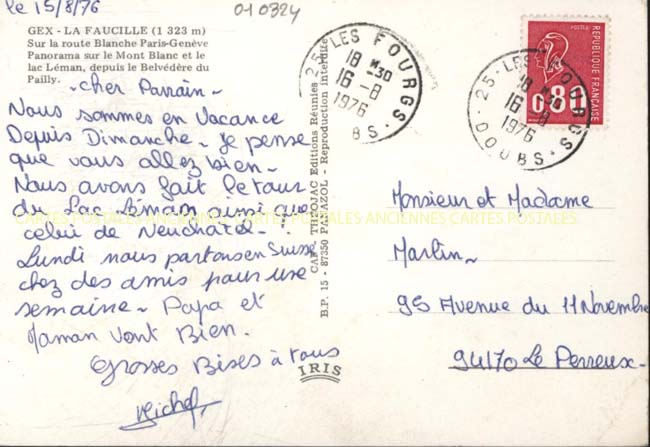 le 15/8/76
010324
GEX - LA FAUCILLE (1 323 m)
Sur la route Blanche Paris-Genève
Panorama sur le Mont Blanc et le
lac Léman, depuis le Belvédère du
Pailly.
- Cher Parrain -
Nous sommes en Vacance
Depuis Dimanche - Je pense
que vous allez bien -
Nous avons fait le tour
du Lac Léman ainsi que
celui de Neuchatel - !
Lundi nous partons en Suisse
chez des amis pour une
semaine - Papa et
Maman vont Bien.
Grosses Bises à tous
Michel
CAP - THEOJAC Editions Réunies
B.P. 15 - 87350 PANAZOL - Reproduction interdite
IRIS
25 - LES FOURGS
18 H 30
16 - 8
1976
DOUBS
25 - LES FOURGS
18 H 30
16 - 8
1976
DOUBS
POSTES
REPUBLIQUE FRANÇAISE
0,80
Monsieur et Madame
Martin -
95 Avenue du 11 Novembre
94170 Le Perreux -
CARTES POSTALES ANCIENNES CARTES POSTALES ANCIENNES CARTES POSTALES